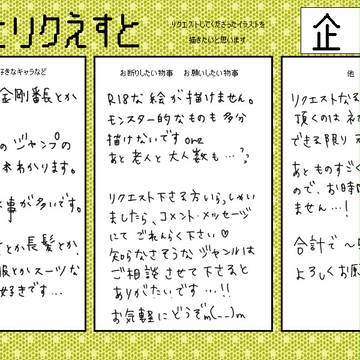 とリクえすと
リクエストしてくださったイラストを
描きたいと思います
企
好きなキャラなど
金剛番長とか
のジャンプの
わかります。
事が多いです。
とか長髪とか、
服とかスーツな
好きです…
お断りしたい物事 お願いしたい物事
R18な絵が描けません。
モンスター的なものも多分
描けないです orz
あと老人と大人数も…
リクエスト下さる方いらっしゃい
ましたら、コメント・メッセージ
にてごれんらく下さい♡
知らなさそうなジャンルは
ご相談させて下さると
ありがたいです…!!
お気軽にどうぞm(__)m
他
リクエストなる
頂くのは
できる限り
あとものすごく
ので、お時間
ません…!
合計で〜
よろしくお願